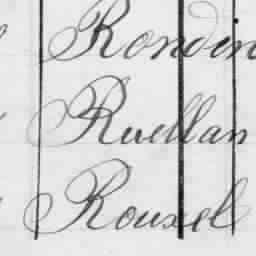 Rondin
Ruellan
Rouxel